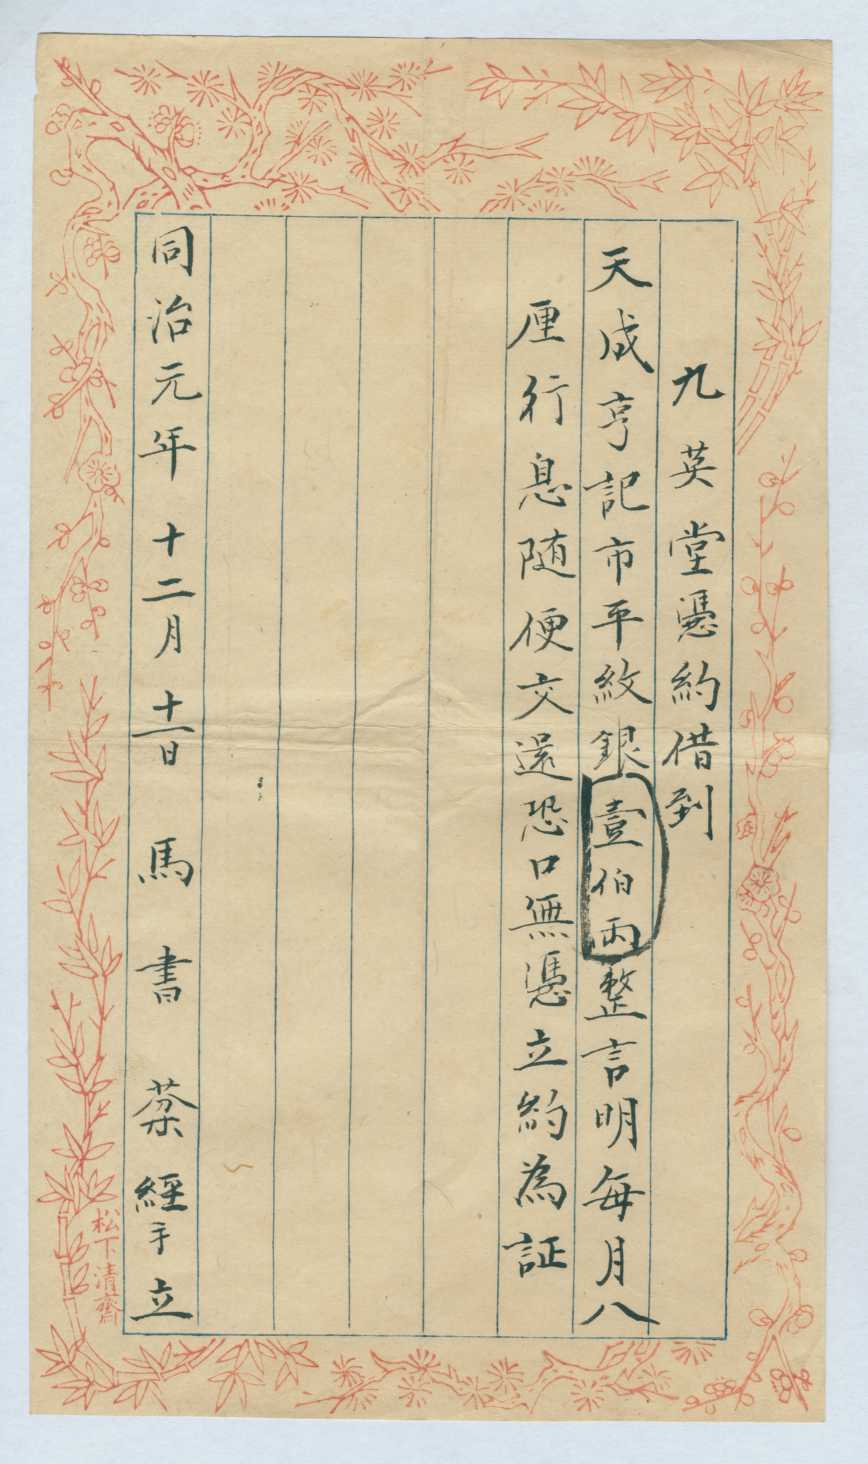 九英堂憑約借到
天成亨記市平紋銀壹伯両整言明每月八
厘行息随便交還恐口無憑立約為証
同治元年十二月十一日 馬書棻經手立
松下清齋